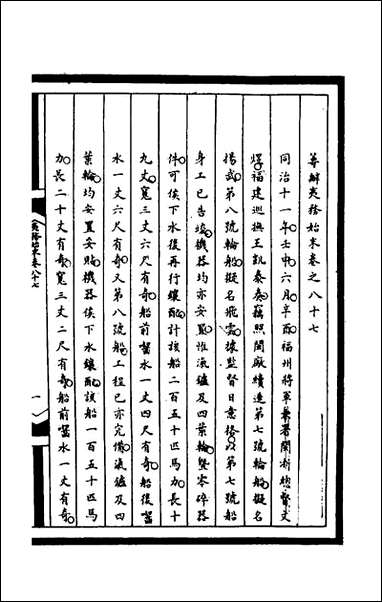 籌辦夷務始末卷之八十七
同治十一年壬申六月辛酉福州將軍兼署閩浙總督文
煜福建巡撫王凱泰奏竊照閩廠續造第七號輪船擬名
揚武第八號輪船擬名飛雲據監督日意格以第七號船
身工已告竣機器均亦安置惟滊爐及四葉輪暨零碎器
件可俟下水後再行鑲配計該船二百五十匹馬力長十
九丈寬三丈六尺有奇船前喫水一丈四尺有奇船後喫
水一丈六尺有奇又第八號船工程已亦完備滊爐及四
葉輪均安置妥貼機器俟下水鑲配該船一百五十匹馬
力長二十丈有奇寬三丈二尺有奇船前喫水一丈有奇
夷務始末卷八十七
一